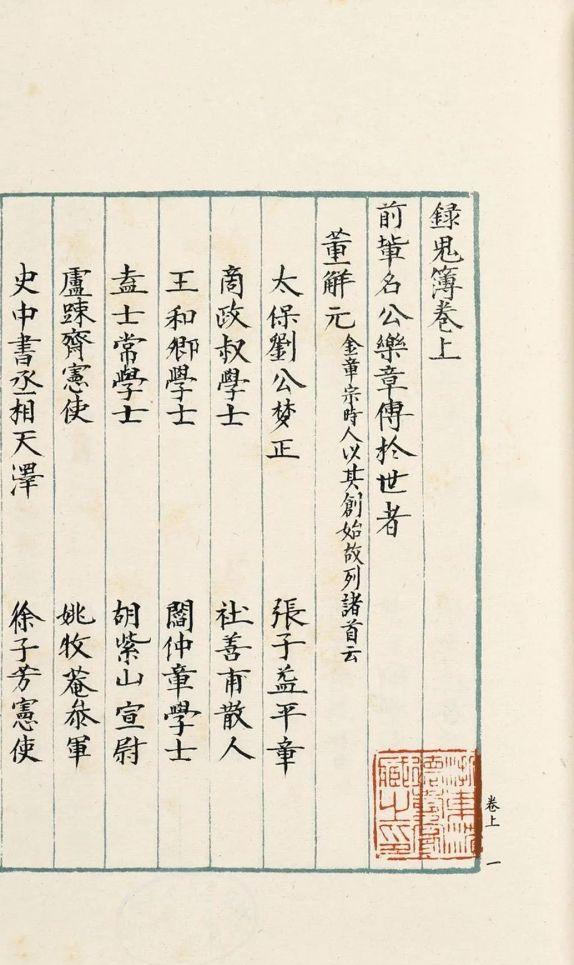 録鬼簿卷上
前輩名公樂章傳於世者
董解元 金章宗時人以其創始故列諸首云
太保劉公梦正 張子益平章
商政叔學士 杜善甫散人
王和卿學士 閻仲章學士
盍士常學士 胡紫山宣尉
盧踈齊憲使 姚牧菴叅軍
史中書丞相天澤 徐子芳憲使
卷上 一